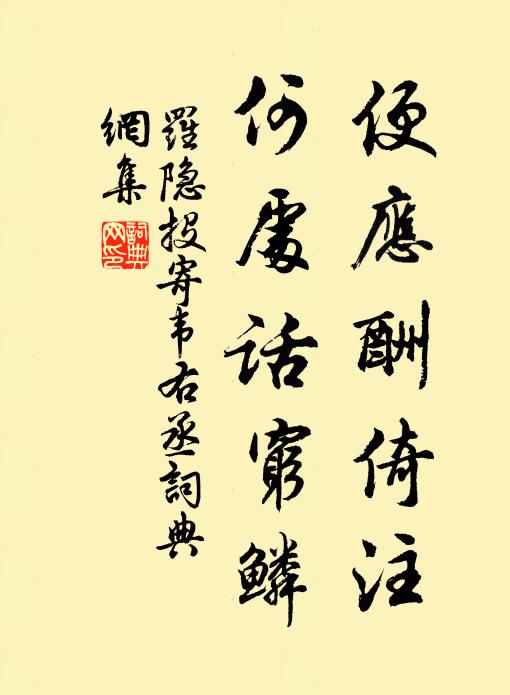 便應酬倚注
何處話窮鱗
羅隐投寄韦右丞詞典
網集
詞典網印